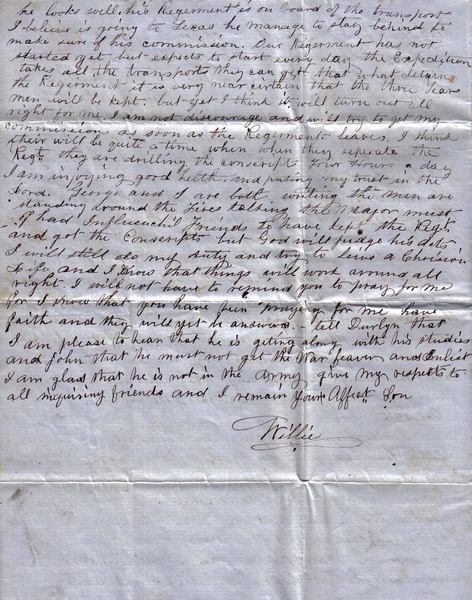 he looks well, his Regement is on board of the transport
I believe is going to Texas he manage to stay behind to
make sure of his commission. Our Regement has not
started yet, but expects to start every day the Expedition
takes all the transports they can get that what detain
the Regement it is very near certain that the three years
men will be kept. but yet I think it will turn out all
right for me. I am not discourage and will try to get my
commission as soon as the Regiment leaves, I think
their will be quite a time when when they seperate the
Regt. they are drilling the conscript four Hours a day
I am injoying good helth, and puting my trust in the
Lord. George and I are both writing the men are
standing around the fire talking the Major must
if had Influenciel friends to have kept the Regt.
and got the Conscripts but God will judge his acts,
I will still do my duty and try to live a Chrisian
Life and I know that things will work around all
right. I will not have to remind you to pray for me
for I know that you have been praying for me have
faith and they will yet be answerd. tell that
I am please to hear that he is geting along with his studies
and John that he must not get the War feaver and Enlist
I am glad that he is not in the Army, give my respects to
all inquiring friends and I remain Your Affect Son
Willie